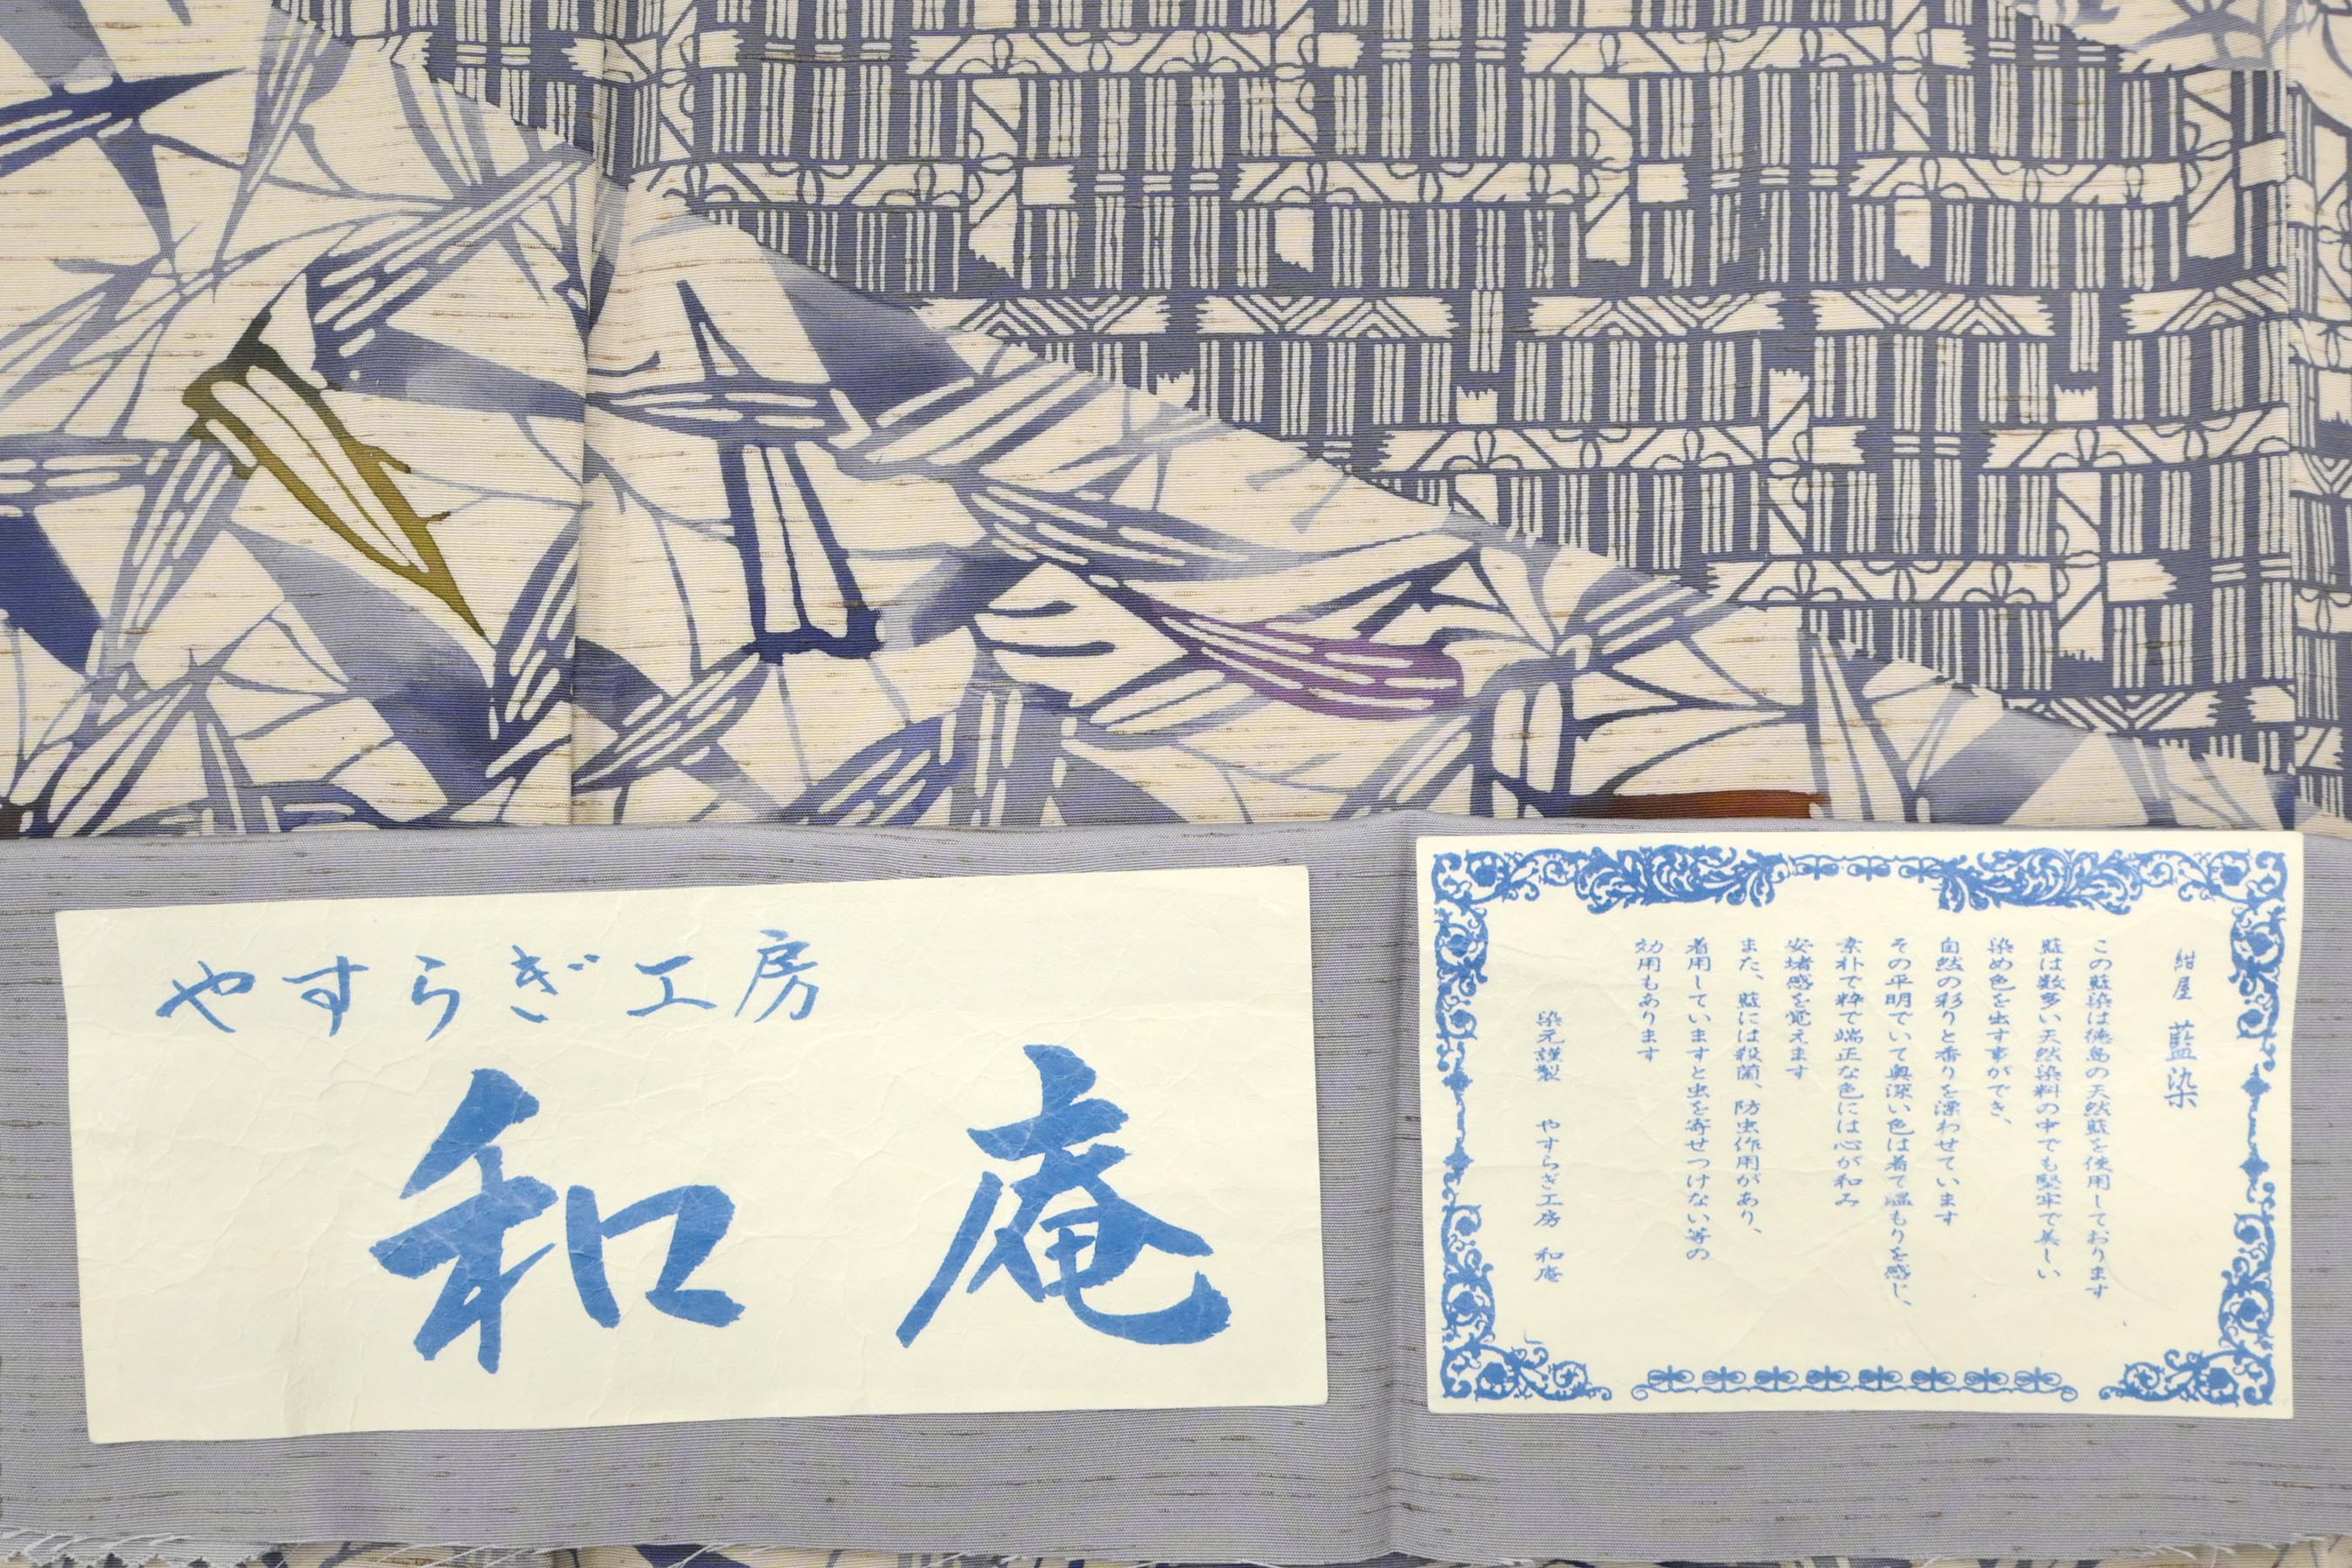 やすらぎ工房
和庵
紺屋 藍染
この藍染は徳島の天然藍を使用しております
藍は数多い天然染料の中でも堅牢で美しい
染め色を出す事ができ、
自然の彩りと香りを漂わせています
その平明でいて奥深い色は着て温もりを感じ、
素朴で粋で端正な色には心が和み
安堵感を覚えます
また、藍には殺菌、防虫作用があり、
着用していますと虫を寄せつけない等の
効用もあります
染元謹製 やすらぎ工房 和庵